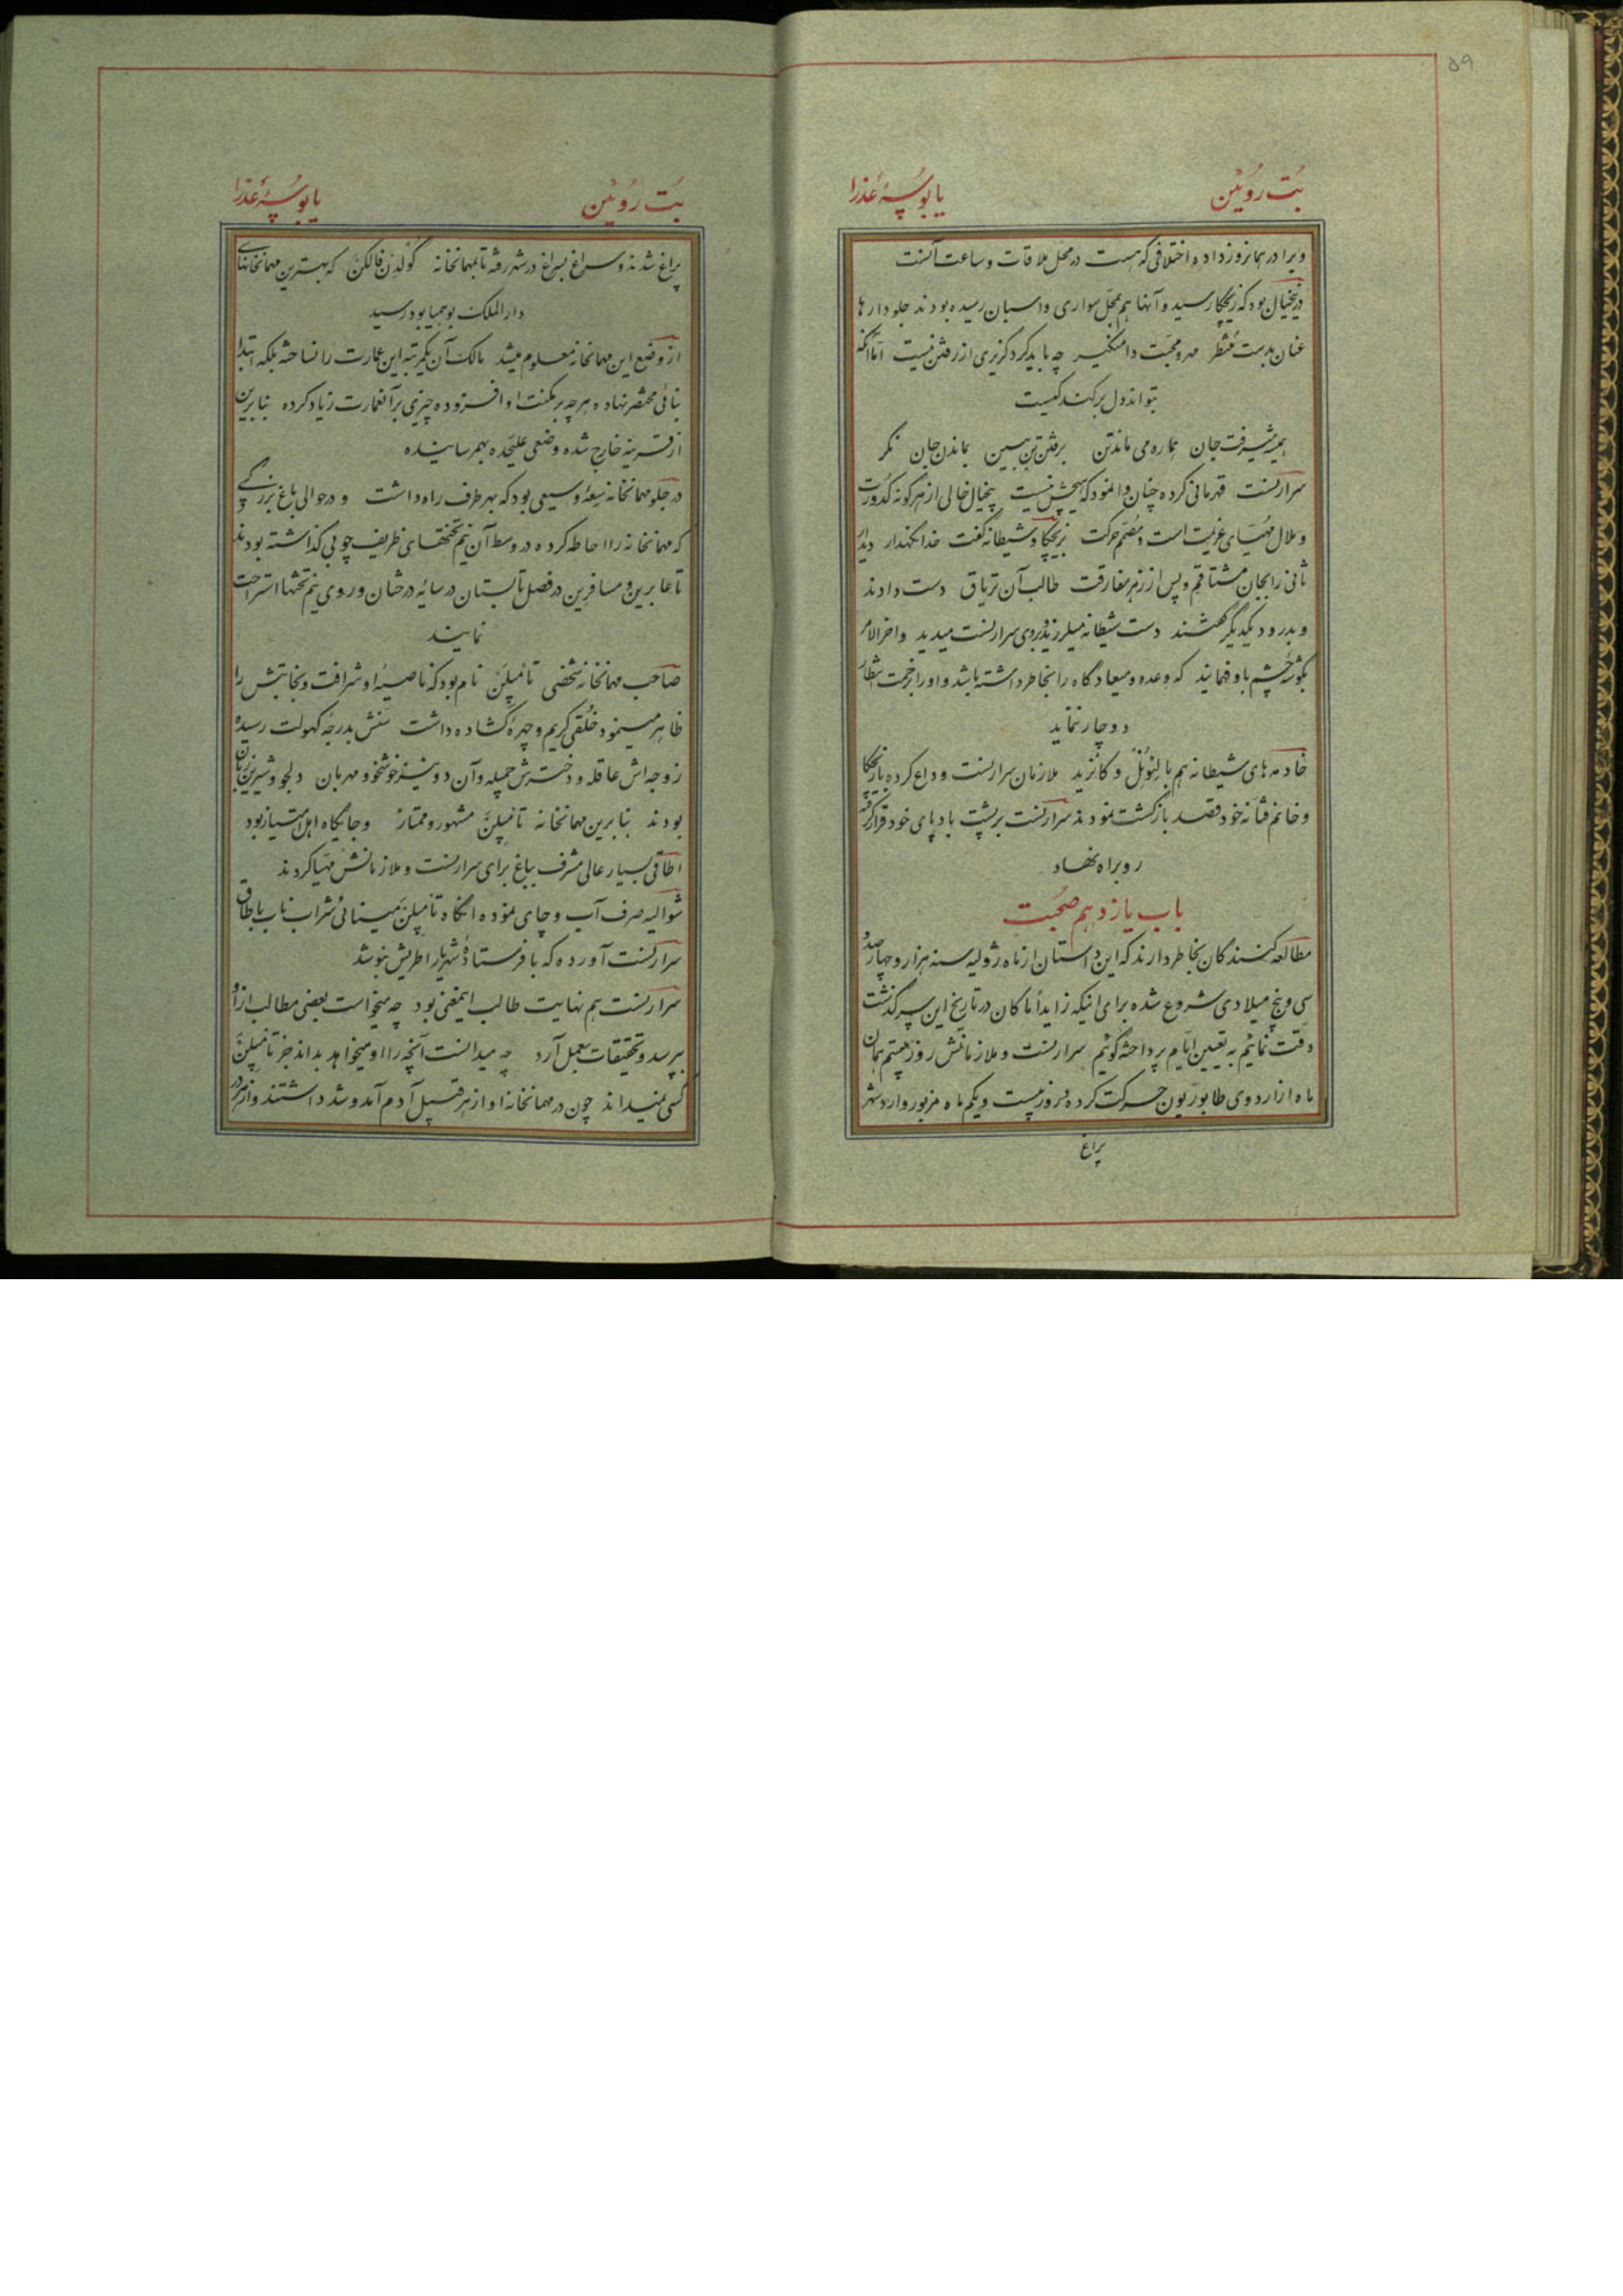 ۵۹
بُت رُویْن یا بوسۀ عَذرا
ویرا در همانروز داده اختلافی که هست در محل ملاقات و ساعت آنست
درینخیال بود که زیچکا رسید و آنها هم بمحل سواری و اسبان رسیده بودند جلودارها
عنان بدست منتظر مهر و محبت دامنگیر چه باید کرد گزیری از رفتن نیست اما آنکه
بتواند دل برکند کیست
همیشه رفت جان همراه می ماند تن برفتن تن ببین بماندن جان نگر
سرارنست قهرمانی کرده چنان وانمود که هیچش نیست بخیال خالی از هر گونه کدورت
و ملال مهیای عزیمت است و مصمم حرکت بزیچکا و شیطانه گفت خدا نگهدار دیدار
ثانی را بجان مشتاقم و پس از زهر مفارقت طالب آن تریاق دست دادند
و بدرود یکدیگر گفتند دست شیطانه میلرزید و بروی سرارنست میدید و آخر الامر
بگوشه چشم باو فهمانید که وعده و میعادگاه را بخاطر داشته باشد و او را بزحمت انتظار
دوچار ننماید
خادمه های شیطانه هم با لیونل و کانرید ملازمان سرارنست وداع کرده با زیچکا
و خانم فتانه خود قصد بازگشت نمودند سرارنست بر پشت بادپای خود قرار گرفته
رو براه نهاد
باب یازدهم صحبت
مطالعه کنندگان بخاطر دارند که این داستان از ماه ژولیه سنه هزار و چهارصد و
سی و پنج میلادی شروع شده برای اینکه زایداً ماکان در تاریخ این سرگذشت
دقت نمائیم به تعیین ایام پرداخته گوئیم سرارنست و ملازمانش روز بیستم همان
ماه از اردوی طابوریون حرکت کرده در روز بیست و یکم ماه مزبور وارد شهر
پراغ
بُت رُویْن یا بوسۀ عَذرا
پراغ شدند و سراغ بسراغ در شهر رفته تا بمهمانخانه گولدن فالکن که بهترین مهمانخانهای
دارالملک بوهیمیا بود رسید
از وضع این مهمانخانه معلوم میشد مالک آن یکمرتبه این عمارت را نساخته بلکه ابتدا
بنائی مختصر نهاده هر چه بر مکنت او افزوده چیزی بر آنعمارت زیاد کرده بنابرین
از قرینه خارج شده وضعی علیحده بهم رسانیده
در جلو مهمانخانه وسیعی بود که بهر طرف راه داشت و در حوالی باغ بزرگی
که مهمانخانه را احاطه کرده در وسط آن نیم تختهای ظریف چوبی گذاشته بودند
تا عابرین و مسافرین در فصل تابستان در سایه درختان و روی نیم تختها استراحت
نمایند
صاحب مهمانخانه شخصی تامپلن نام بود که ناصیه او شرافت و نجابتش را
ظاهر مینمود خلقی کریم و چهرۀ گشاده داشت سنش بدرجه کهولت رسیده
زوجه اش عاقله و دخترش جمیله و آن دوشیزه خوشخو و مهربان دلجو و شیرین زبان
بودند بنابرین مهمانخانه تامپلن مشهور و ممتاز و جایگاه اهل امتیاز بود
اطاقی بسیار عالی مشرف بباغ برای سرارنست و ملازمانش مهیا کردند
شوالیه صرف آب و چای نموده آنگاه تامپلن مینائی شراب ناب باطاق
سرارنست آورده که با فرستادۀ شهریار اطریش بنوشد
سرارنست هم نهایت طالب اینمعنی بود چه میخواست بعضی مطالب از او
بپرسد و تحقیقات بعمل آرد چه میدانست آنچه را او میخواهد بداند جز تامپلن
کسی نمیداند چون در مهمانخانه او از هر قبیل آدم آمد و شد داشتند و از هر در